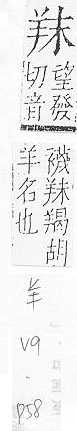 𦍪望發
切音
韈䍪羯胡
羊名也
羊
V9
-
P58